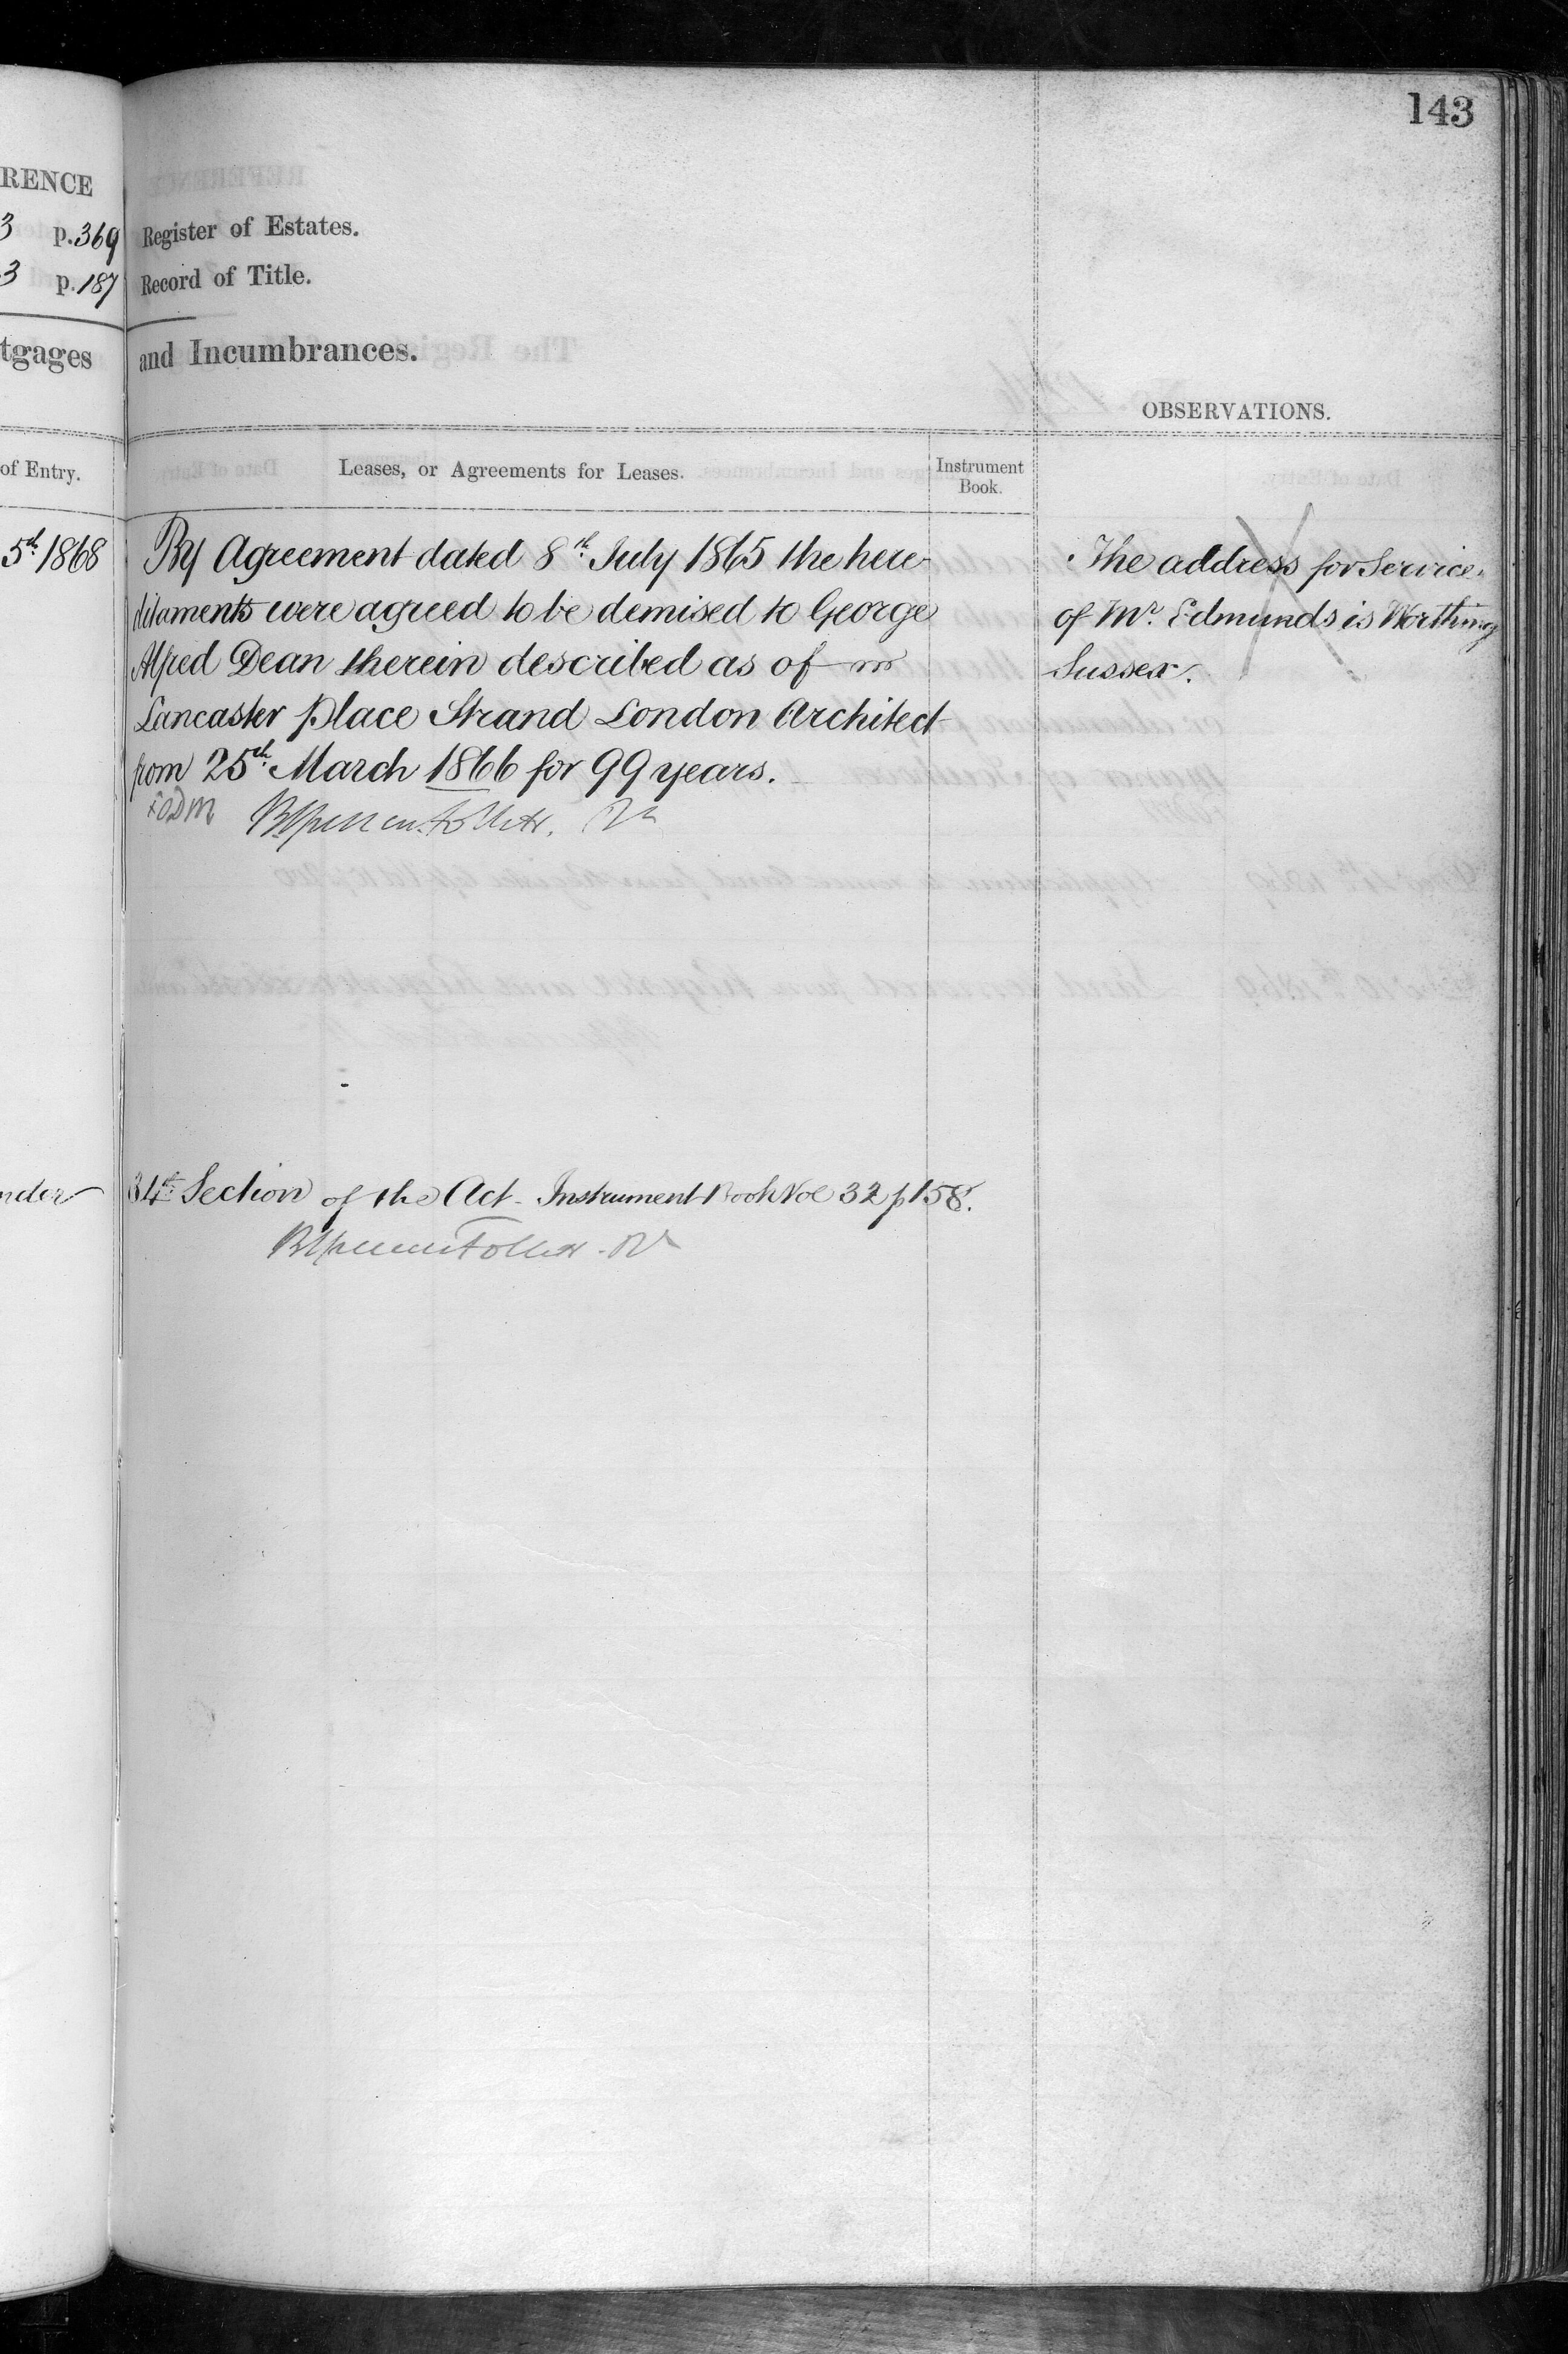 143
RENCE
3 p. 369 Register of Estates.
3 p. 187 Record of Title.
tgages and Incumbrances.
OBSERVATIONS.
of Entry. Leases, or Agreements for Leases. Instrument Book.
5th 1868 By Agreement dated 8th July 1865 the here-
ditaments were agreed to be demised to George
Alfred Dean therein described as of
Lancaster Place Strand London Architect
from 25th March 1866 for 99 years.
The address for Service
of Mr. Edmunds is Worthing
Sussex.
nder 34th Section of the Act - Instrument Book Vol 32 p 158.